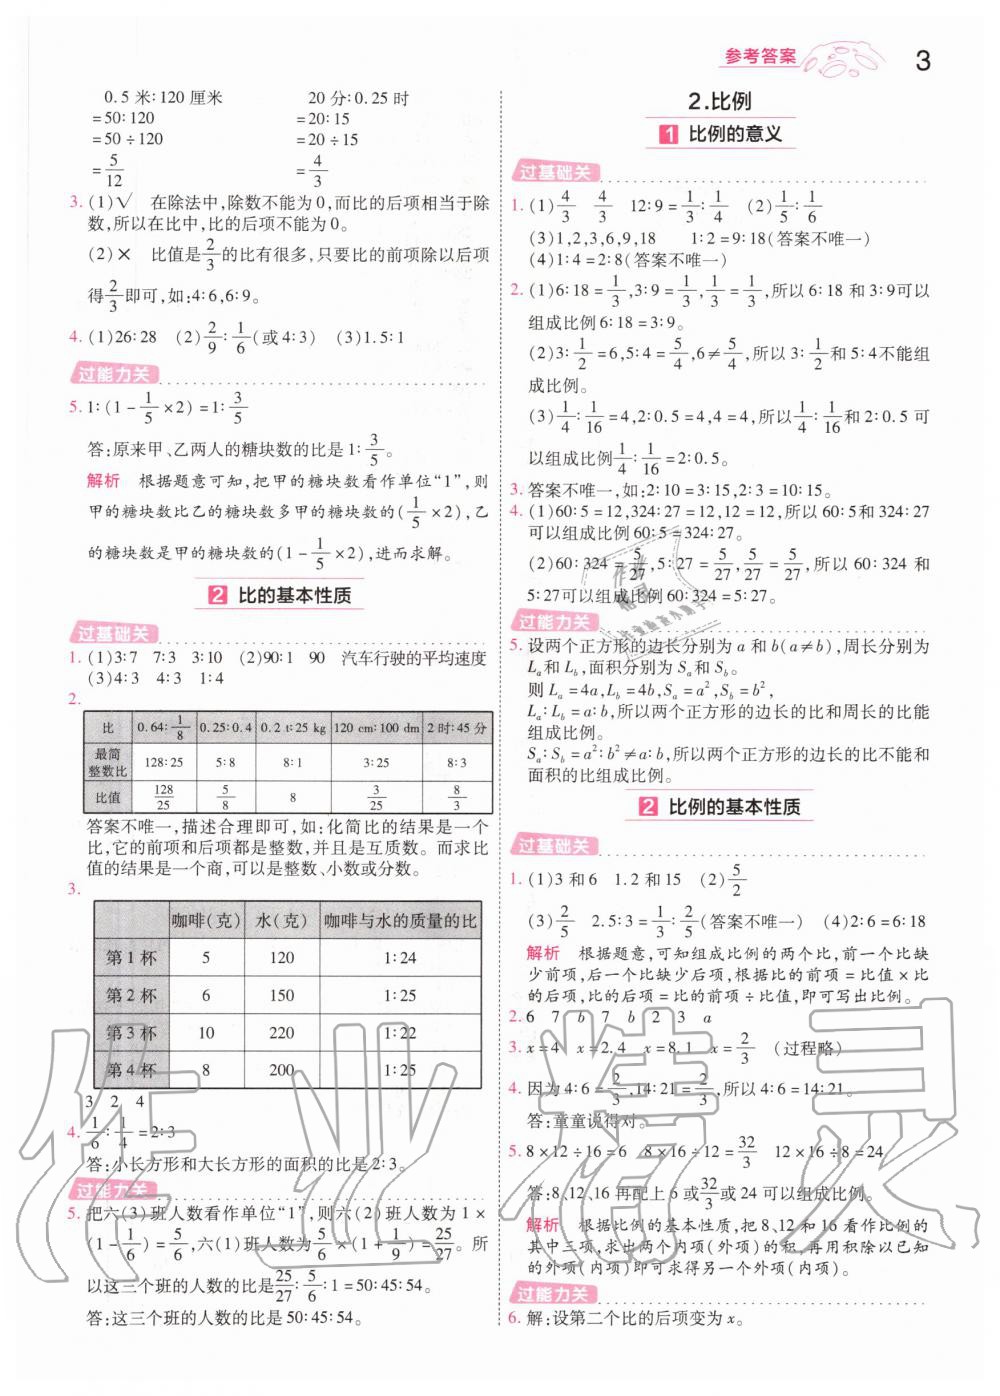 参考答案
3
0.5米∶120厘米　20分∶0.25时
=50∶120　=20∶15
=50÷120　=20÷15
=5/12　=4/3
3.(1)√　在除法中,除数不能为0,而比的后项相当于除
数,所以在比中,比的后项不能为0。
(2)×　比值是2/3的比有很多,只要比的前项除以后项
得2/3即可,如:4∶6,6∶9。
4.(1)26∶28　(2)2/9∶1/6(或4∶3)　(3)1.5∶1
过能力关
5.1∶(1-1/5×2)=1∶3/5
答:原来甲、乙两人的糖块数的比是1∶3/5。
解析　根据题意可知,把甲的糖块数看作单位“1”,则
甲的糖块数比乙的糖块数多甲的糖块数的(1/5×2),乙
的糖块数是甲的糖块数的(1-1/5×2),进而求解。
2 比的基本性质
过基础关
1.(1)3∶7　7∶3　3∶10　(2)90∶1　90　汽车行驶的平均速度
(3)4∶3　4∶3　1∶4
2.
比　0.64∶1/8　0.25∶0.4　0.2 t∶25 kg　120 cm∶100 dm　2时∶45分
最简整数比　128∶25　5∶8　8∶1　3∶25　8∶3
比值　128/25　5/8　8　3/25　8/3
答案不唯一,描述合理即可,如:化简比的结果是一个
比,它的前项和后项都是整数,并且是互质数。而求比
值的结果是一个商,可以是整数、小数或分数。
3.
咖啡(克)　水(克)　咖啡与水的质量的比
第1杯　5　120　1∶24
第2杯　6　150　1∶25
第3杯　10　220　1∶22
第4杯　8　200　1∶25
3　2　4
4.1/6∶1/4=2∶3
答:小长方形和大长方形的面积的比是2∶3。
过能力关
5.把六(3)班人数看作单位“1”,则六(2)班人数为1×
(1-1/6)=5/6,六(1)班人数为5/6×(1+1/9)=25/27。所
以这三个班的人数的比是25/27∶5/6∶1=50∶45∶54。
答:这三个班的人数的比是50∶45∶54。
2.比例
1 比例的意义
过基础关
1.(1)4/3　4/3　12∶9=1/3∶1/4　(2)1/5∶1/6
(3)1,2,3,6,9,18　1∶2=9∶18(答案不唯一)
(4)1∶4=2∶8(答案不唯一)
2.(1)6∶18=1/3,3∶9=1/3,1/3=1/3,所以6∶18和3∶9可以
组成比例6∶18=3∶9。
(2)3∶1/2=6,5∶4=5/4,6≠5/4,所以3∶1/2和5∶4不能组
成比例。
(3)1/4∶1/16=4,2∶0.5=4,4=4,所以1/4∶1/16和2∶0.5可
以组成比例1/4∶1/16=2∶0.5。
3.答案不唯一,如:2∶10=3∶15,2∶3=10∶15。
4.(1)60∶5=12,324∶27=12,12=12,所以60∶5和324∶27
可以组成比例60∶5=324∶27。
(2)60∶324=5/27,5∶27=5/27,5/27=5/27,所以60∶324和
5∶27可以组成比例60∶324=5∶27。
过能力关
5.设两个正方形的边长分别为a和b(a≠b),周长分别为
Lₐ和L_b,面积分别为Sₐ和S_b。
则Lₐ=4a,L_b=4b,Sₐ=a²,S_b=b²,
Lₐ∶L_b=a∶b,所以两个正方形的边长的比和周长的比能
组成比例。
Sₐ∶S_b=a²∶b²≠a∶b,所以两个正方形的边长的比不能和
面积的比组成比例。
2 比例的基本性质
过基础关
1.(1)3和6　1.2和15　(2)5/2
(3)2/5　2.5∶3=1/3∶2/5(答案不唯一)　(4)2∶6=6∶18
解析　根据题意,可知组成比例的两个比,前一个比缺
少前项,后一个比缺少后项,根据比的前项=比值×比
的后项,比的后项=比的前项÷比值,即可写出比例。
2.6　7　b　7　b　2　3　a
3.x=4　x=2.4　x=8.1　x=2/3　(过程略)
4.因为4∶6=2/3,14∶21=2/3,所以4∶6=14∶21。
答:童童说得对。
5.8×12÷16=6　8×16÷12=32/3　12×16÷8=24
答:8、12、16再配上6或32/3或24可以组成比例。
解析　根据比例的基本性质,把8、12和16看作比例的
其中三项,求出两个内项(外项)的积,再用积除以已知
的外项(内项)即可求得另一个外项(内项)。
过能力关
6.解:设第二个比的后项变为x。
作业精灵